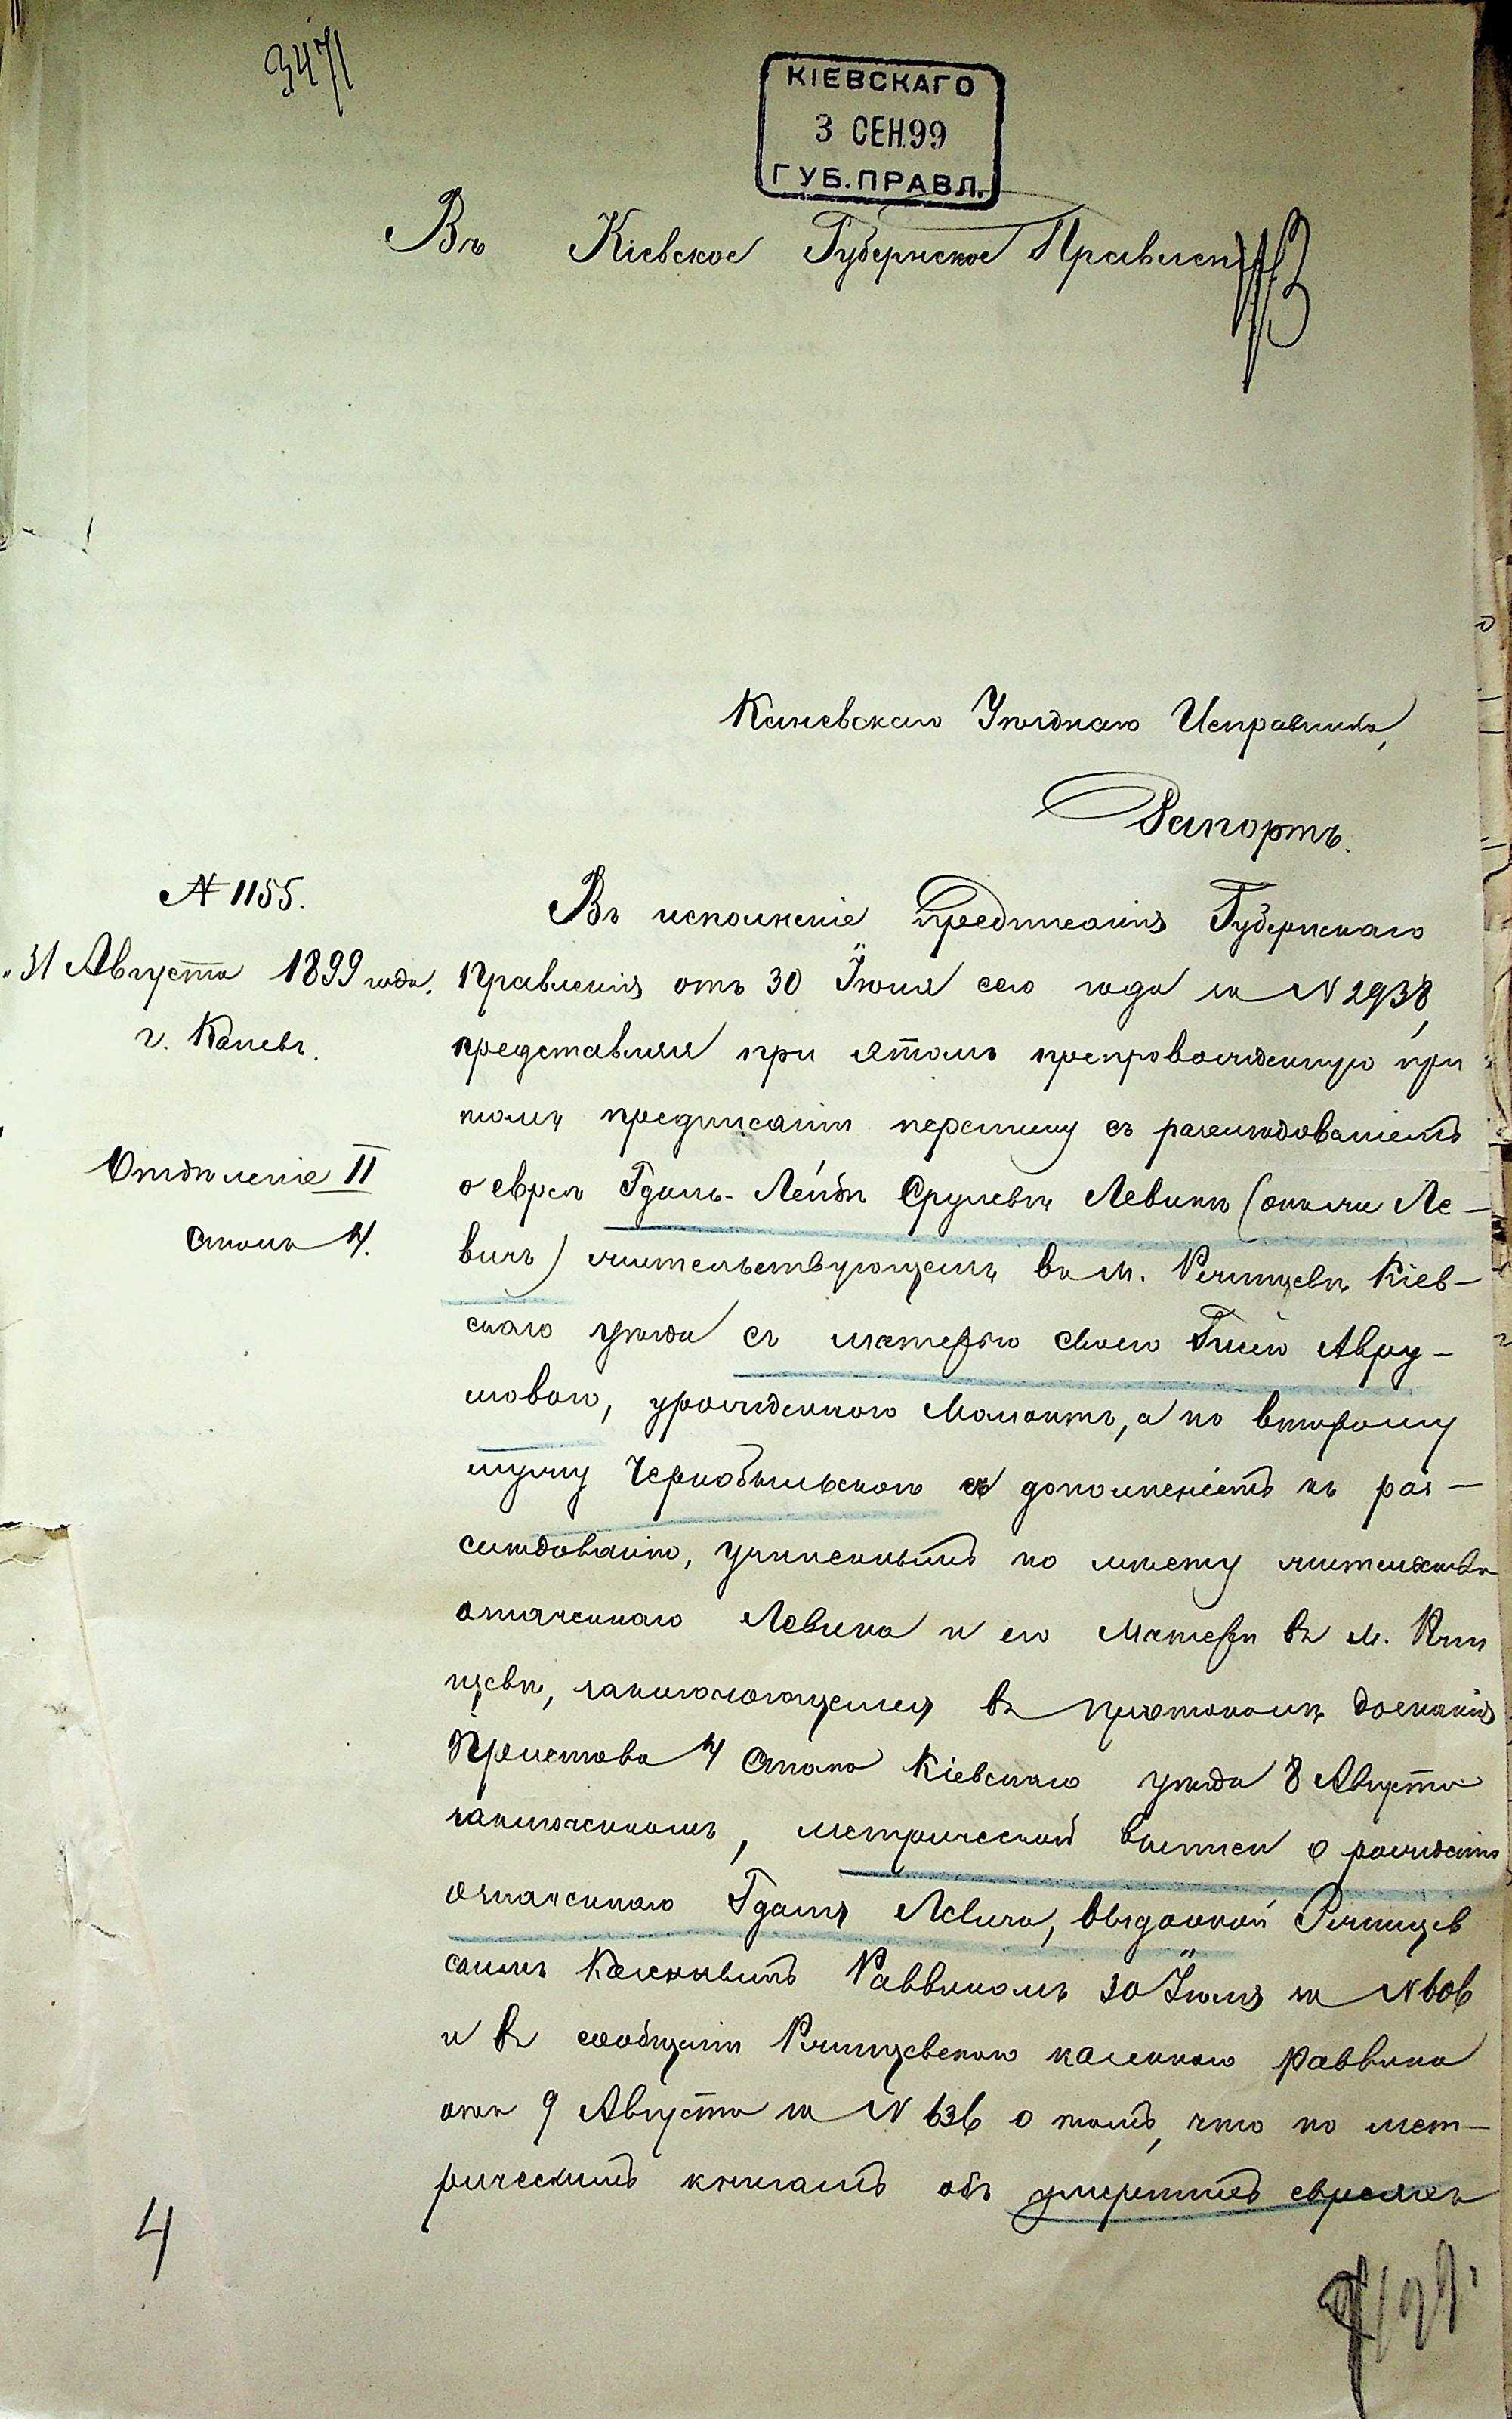 3471
КІЕВСКАГО
3 СЕН.99
ГУБ.ПРАВЛ.
Въ Кіевское Губернское Правленіе
Каневскаго Уѣзднаго Исправника,
Рапортъ.
№ 1155.
"31 Августа 1899 года.
г. Каневъ.
Отдѣленіе II
Столъ 4.
Въ исполненіе предписанія Губернскаго
Правленія отъ 30 Іюня сего года за № 2938,
представляя при этомъ препровожденную при
томъ предписаніи переписку съ разслѣдованіемъ
о евреѣ Гдаль-Лейбѣ Срулевѣ Левинѣ (онъ же Ле-
вичъ) жительствующемъ въ м. Ржищевѣ Кіев-
скаго уѣзда съ матерью своею Гисею Авру-
мовою, урожденною Мамонтъ, а по второму
мужу Чернобыльскою съ дополненіемъ къ раз-
слѣдованію, учиненнымъ по мѣсту жительства
означеннаго Левина и его матери въ м. Ржи
щевѣ, заключающемся въ протоколѣ дознанія
Пристава 4 стана Кіевскаго уѣзда 8 Августа
заключенномъ, метрической выписи о рожденіи
означеннаго Гдаля Левича, выданной Ржищев
скимъ Казеннымъ Раввиномъ 30 Іюля за № 606
и въ сообщеніи Ржищевскаго казеннаго раввина
отъ 9 Августа за № 636 о томъ, что по мет-
рическимъ книгамъ объ умершихъ евреяхъ
4